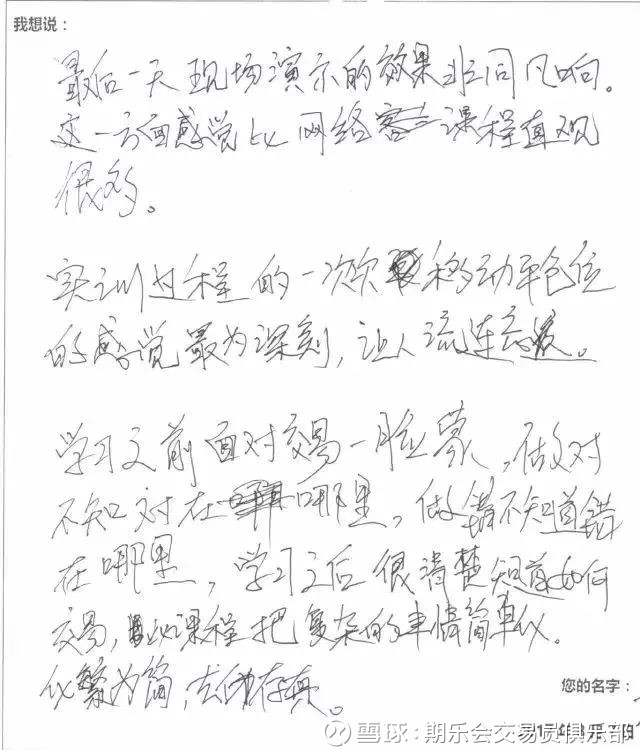 我想说：
最后一天现场演示的效果非同凡响。
这一方面感觉比网络课程直观
很多。
实训过程的一次次移动平仓位
的感觉最为深刻，让人流连忘返。
学习之前面对交易一脸蒙，做对
不知对在哪里，做错不知道错
在哪里，学习之后很清楚知道如何
交易，课程把复杂的事情简单化。
化繁为简，去伪存真。
您的名字：
雪球：期乐会交易员俱乐部